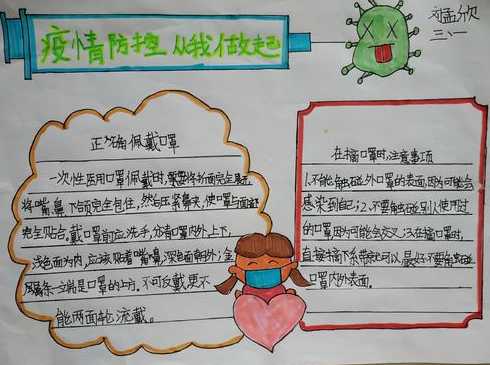 疫情防控 从我做起
刘孟欣
三、一
正确佩戴口罩
一次性医用口罩佩戴时,要将折面完全展开
将嘴、鼻、下颌完全包住,然后压紧鼻夹,使口罩与面部
完全贴合。戴口罩前应洗手,分清口罩内外上下,
浅色面为内,应该贴着嘴鼻,深色面朝外;金
属条一端是口罩的上方。不可反戴,更不
能两面轮流戴。
在摘口罩时,注意事项
1.不能触碰外口罩的表面,因为可能会
感染到自己;2.不要触碰别人使用过
的口罩因为可能会交叉;3.在摘口罩时,
直接摘下系带就可以,最好不要触碰
口罩内外表面。